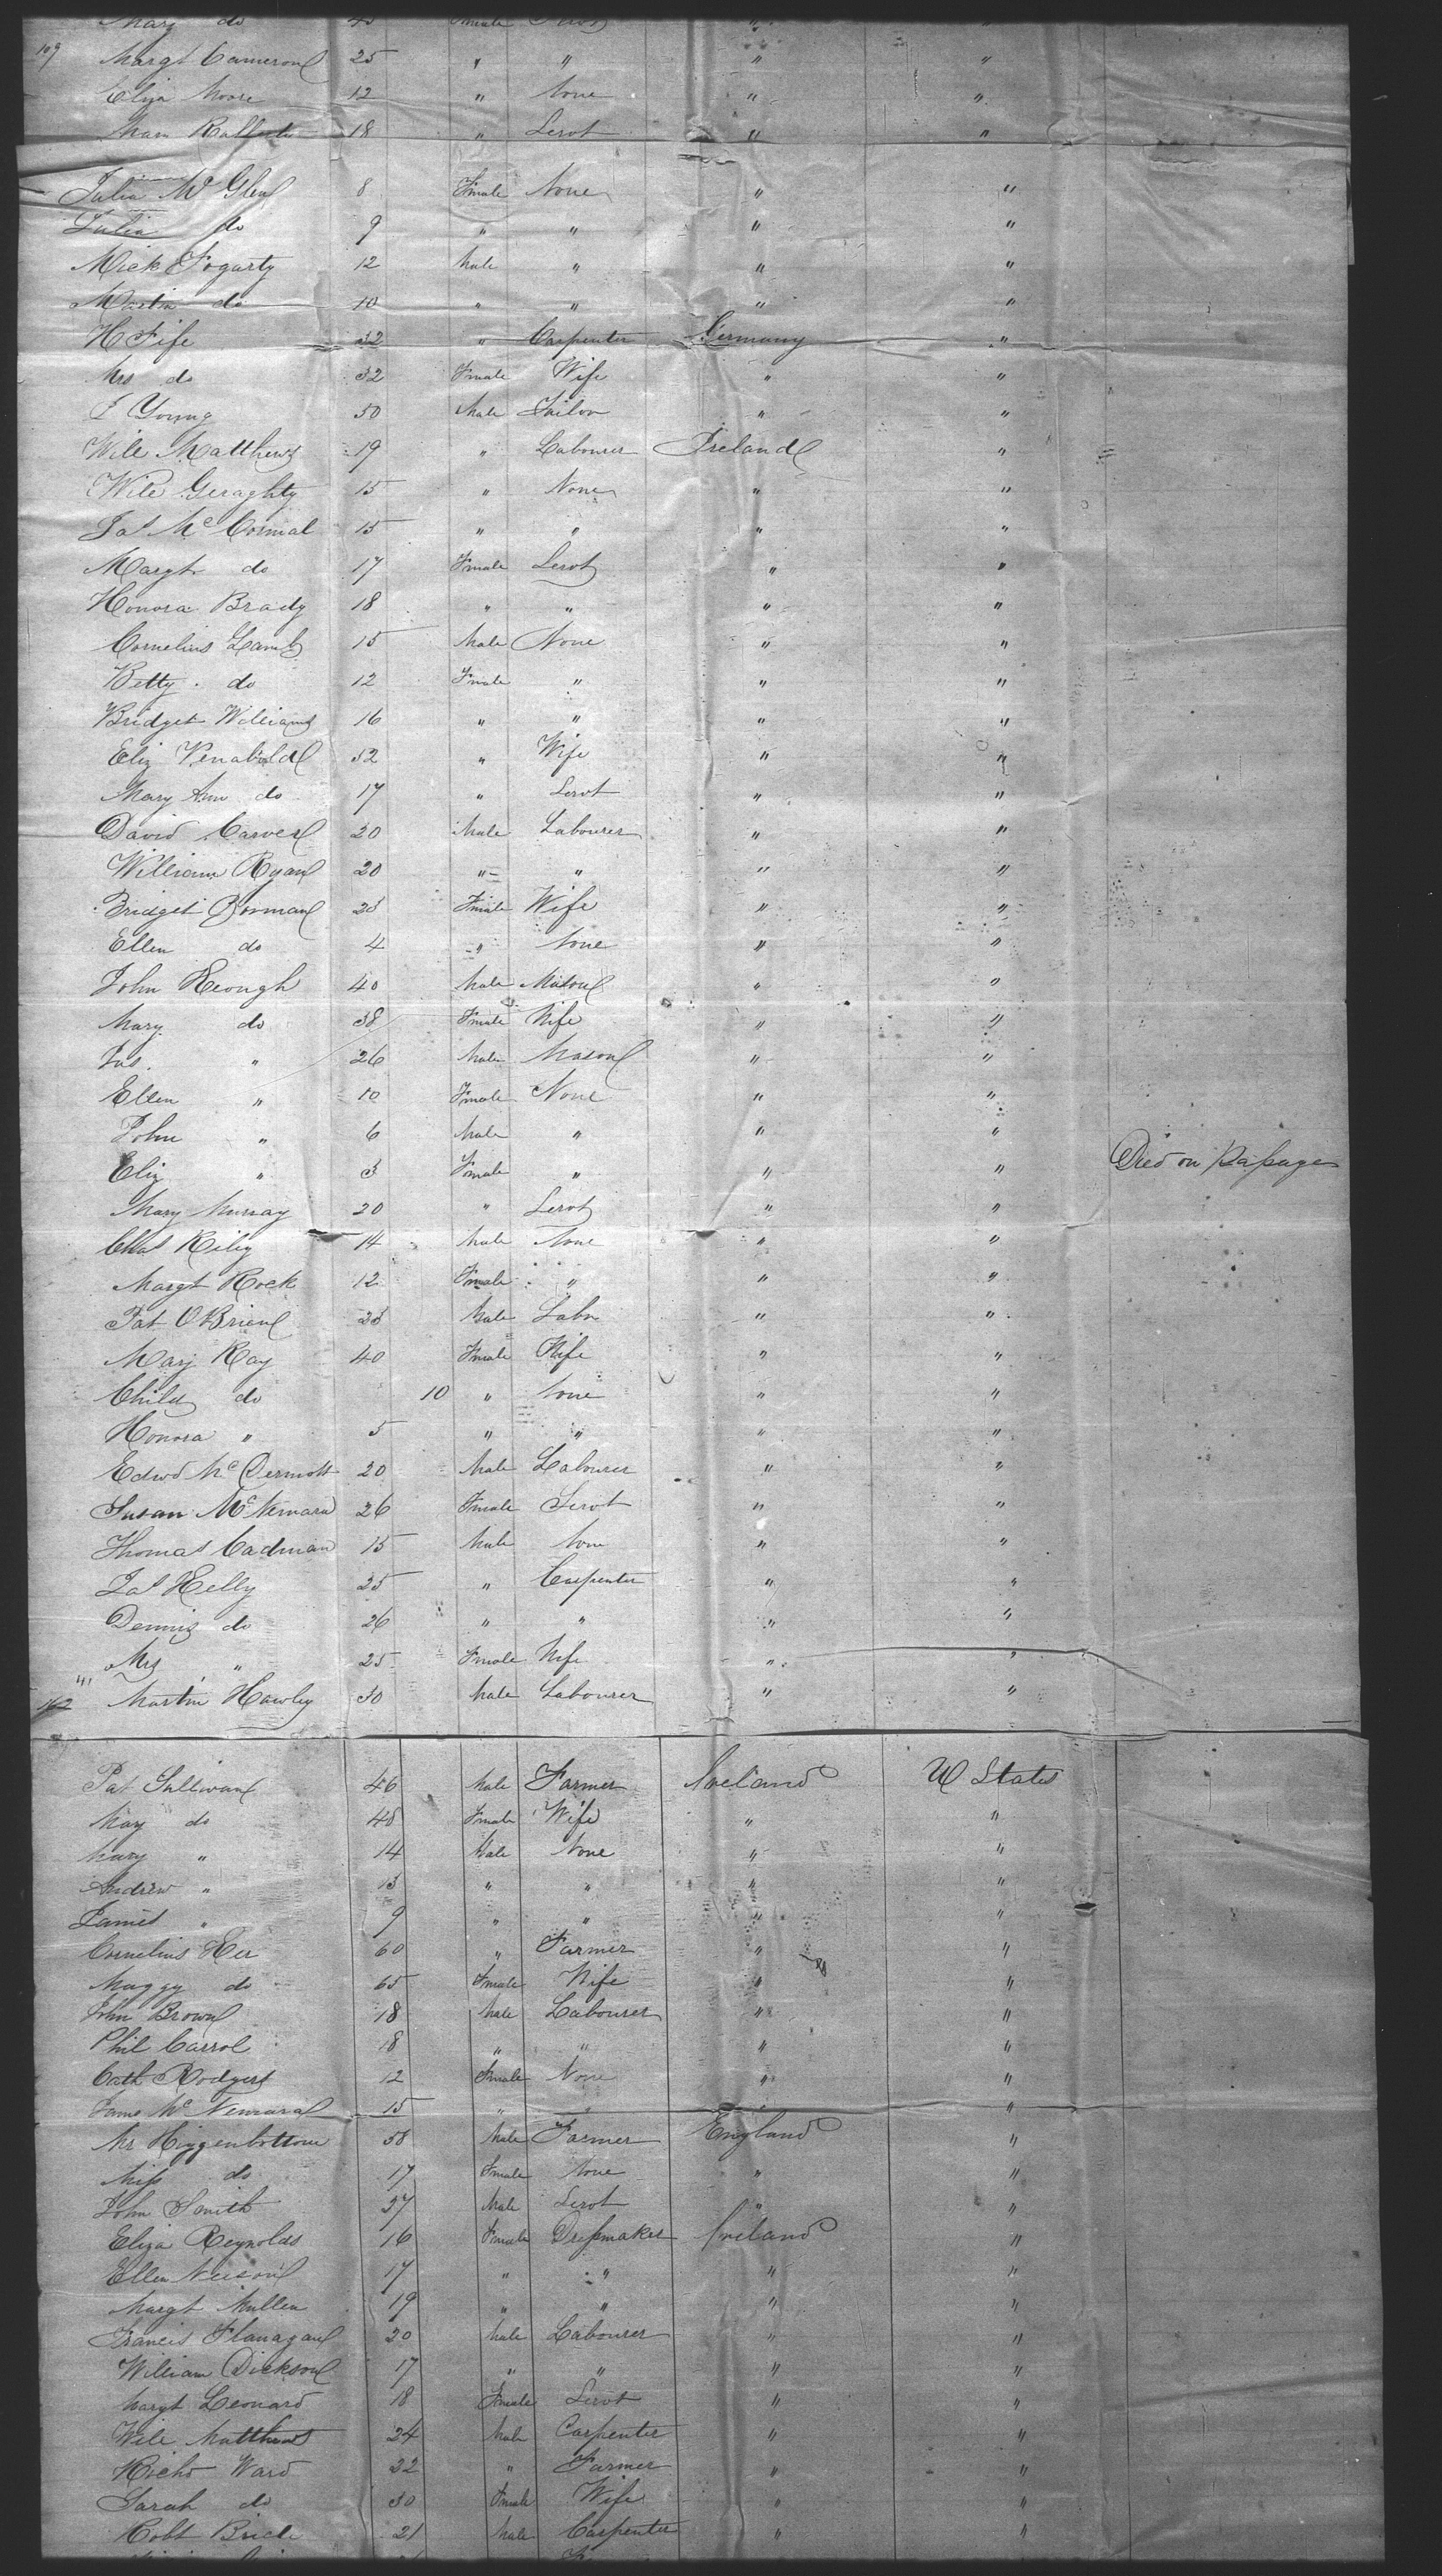 Mary do 40 Female Servt " "
109 Margt Cameron 25 " " " "
Eliza Moore 12 " None " "
18 " Servt " "
Julia Mc Glen 8 Female None " "
Julia do 9 " " " "
Mick Fogarty 12 Male " " "
Martin do 10 " " " "
H Fife 32 " Carpenter Germany "
Mrs do 32 Female Wife " "
Young 50 Male " "
Will Matthews 19 " Labourer Ireland "
Will Geraghty 15 " None " "
Jas Mc Cormal 15 " " " "
Margt do 17 Female Servt " "
Honora Brady 18 " " " "
Cornelius Lamb 15 Male None " "
Betty do 12 Female " " "
Bridget Williams 16 " " " "
Eliz 52 " Wife " "
Mary Ann do 17 " Servt " "
David Carver 20 Male Labourer " "
William Ryan 20 " " " "
Bridget 23 Female Wife " "
Ellen do 4 " None " "
John Keough 40 Male Mason " "
Mary do 38 Female Wife " "
Jas. " 26 Male Mason " "
Ellen " 10 Female None " "
John " 6 Male " " "
Eliz " 3 Female " " " Died on Passage
Mary Murray 20 " Servt " "
Chas Riley 14 Male None " "
Margt Rock 12 Female " " "
Pat OBrien 23 Male Labr " "
Mary Ray 40 Female Wife " "
Child do 10 " None " "
Honora " 5 " " " "
Edwd Mc Dermott 20 Male Labourer " "
Susan Mc Nemara 26 Female Servt " "
Thomas Cadman 15 Male None " "
Jas Kelly 25 " Carpenter " "
Dennis do 26 " " " "
Mrs " 25 Female Wife " "
Martin Hawley 30 Male Labourer " "
Pat Sullivan 46 Male Farmer Ireland U States
Mary do 48 Female Wife " "
Mary " 14 Male None " "
Andrew " 13 " " " "
James " 9 " " " "
Cornelius Ker 60 " Farmer " "
Maggy do 65 Female Wife " "
John Brown 18 Male Labourer " "
Phil Carrol 18 " " " "
Cath Rodgers 12 Female None " "
Jame Mc Nemara 15 " " " "
Mr Higgenbottom 58 Male Farmer England "
Miss do 17 Female None " "
John Smith 37 Male Servt " "
Eliza Reynolds 16 Female Dressmaker Ireland "
Ellen 17 " " " "
Margt Mullen 19 " " " "
Francis Flanagan 20 Male Labourer " "
William Dickson 17 " " " "
Margt Leonard 18 Female Servt " "
Will Matthews 24 Male Carpenter " "
Richd Ward 32 " Farmer " "
Sarah do 30 Female Wife " "
Robt 21 Male Carpenter " "